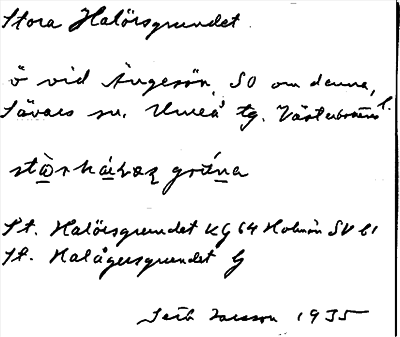 Stora Halörsgrundet.
ö vid Ängesön, SO om denna,
Sävars sn. Umeå tg. Västerbottens l.
St. Halörsgrundet KG 64 Holmön SV b1
St. Halågersgrundet G
Larsson 1935